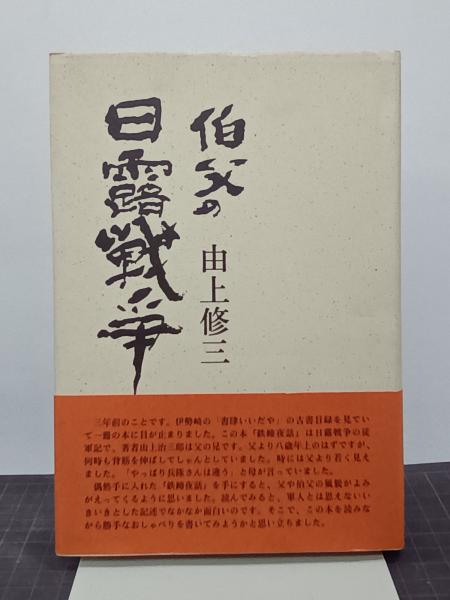 伯父の
日露戦争
由上修三
三年前のことです。伊勢崎の「書肆いいだや」の古書目録を見てい
て一冊の本に目が止まりました。この本「鉄蹄夜話」は日露戦争の従
軍記で、著者由上治三郎は父の兄です。父より八歳年上のはずですが、
何時も背筋を伸ばしてしゃんとしていました。時には父より若く見え
ました。「やっぱり兵隊さんは違う」と母が言っていました。
偶然手に入れた「鉄蹄夜話」を手にすると、父や伯父の風貌がよみ
がえってくるように思いました。読んでみると、軍人とは思えないい
きいきとした記述でなかなか面白いのです。そこで、この本を読みな
がら勝手なおしゃべりを書いてみようかと思い立ちました。